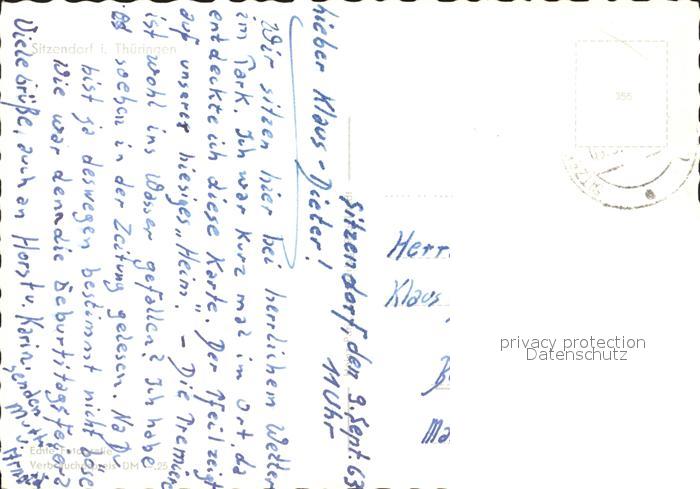 Sitzendorf i. Thüringen
Sitzendorf, den 9. Sept. 63
11 Uhr
Lieber Klaus-Dieter!
Wir sitzen hier bei herrlichem Wetter
im Park. Ich war kurz mal im Ort, da
entdeckte ich diese Karte. Der Pfeil zeigt
auf unserer hiesiges „Heim." - Die Premiere
ist wohl ins Wasser gefallen? Ich habe
es soeben in der Zeitung gelesen. Na Du
bist ja deswegen bestimmt nicht böse
Wie war denn die Geburtstagsfeier?
Viele Grüße, auch an Horst u. Karin, senden
Mutti
Echte Fotografie
Verbraucherpreis DM -,25
Herrn
Klaus
355
privacy protection
Datenschutz